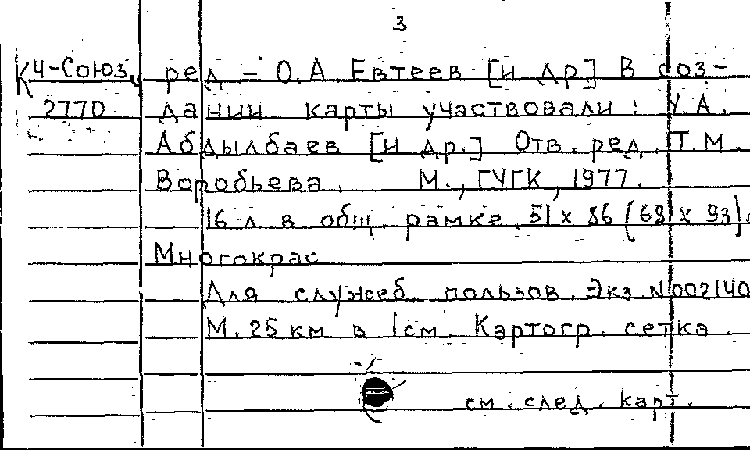 3
К4-Союз, ред - О.А. Евтеев [и др] В соз-
2770 дании карты участвовали: У.А.
Абдылбаев [и др.] Отв. ред. Т.М.
Воробьева. М., ГУГК, 1977.
16 л в общ. рамке. 51 x 86 (68 x 93).
Многокрас
Для служеб. пользов. Экз. N 002140
М. 25 км в 1 см. Картогр. сетка.
см. след. карт.